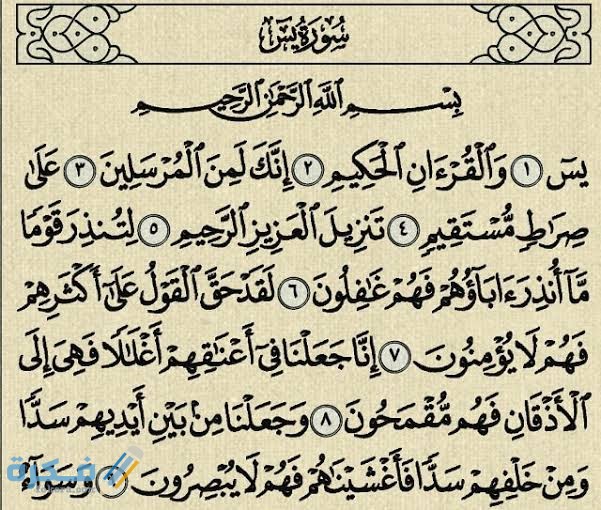 سُورَةُ يسٓ
بِسْمِ ٱللَّهِ ٱلرَّحْمَٰنِ ٱلرَّحِيمِ
يسٓ ١ وَٱلْقُرْءَانِ ٱلْحَكِيمِ ٢ إِنَّكَ لَمِنَ ٱلْمُرْسَلِينَ ٣ عَلَىٰ
صِرَٰطٍ مُّسْتَقِيمٍ ٤ تَنزِيلَ ٱلْعَزِيزِ ٱلرَّحِيمِ ٥ لِتُنذِرَ قَوْمًا
مَّآ أُنذِرَ ءَابَآؤُهُمْ فَهُمْ غَٰفِلُونَ ٦ لَقَدْ حَقَّ ٱلْقَوْلُ عَلَىٰٓ أَكْثَرِهِمْ
فَهُمْ لَا يُؤْمِنُونَ ٧ إِنَّا جَعَلْنَا فِىٓ أَعْنَٰقِهِمْ أَغْلَٰلًا فَهِىَ إِلَى
ٱلْأَذْقَانِ فَهُم مُّقْمَحُونَ ٨ وَجَعَلْنَا مِنۢ بَيْنِ أَيْدِيهِمْ سَدًّا
وَمِنْ خَلْفِهِمْ سَدًّا فَأَغْشَيْنَٰهُمْ فَهُمْ لَا يُبْصِرُونَ ٩ وَسَوَآءٌ
فكرة